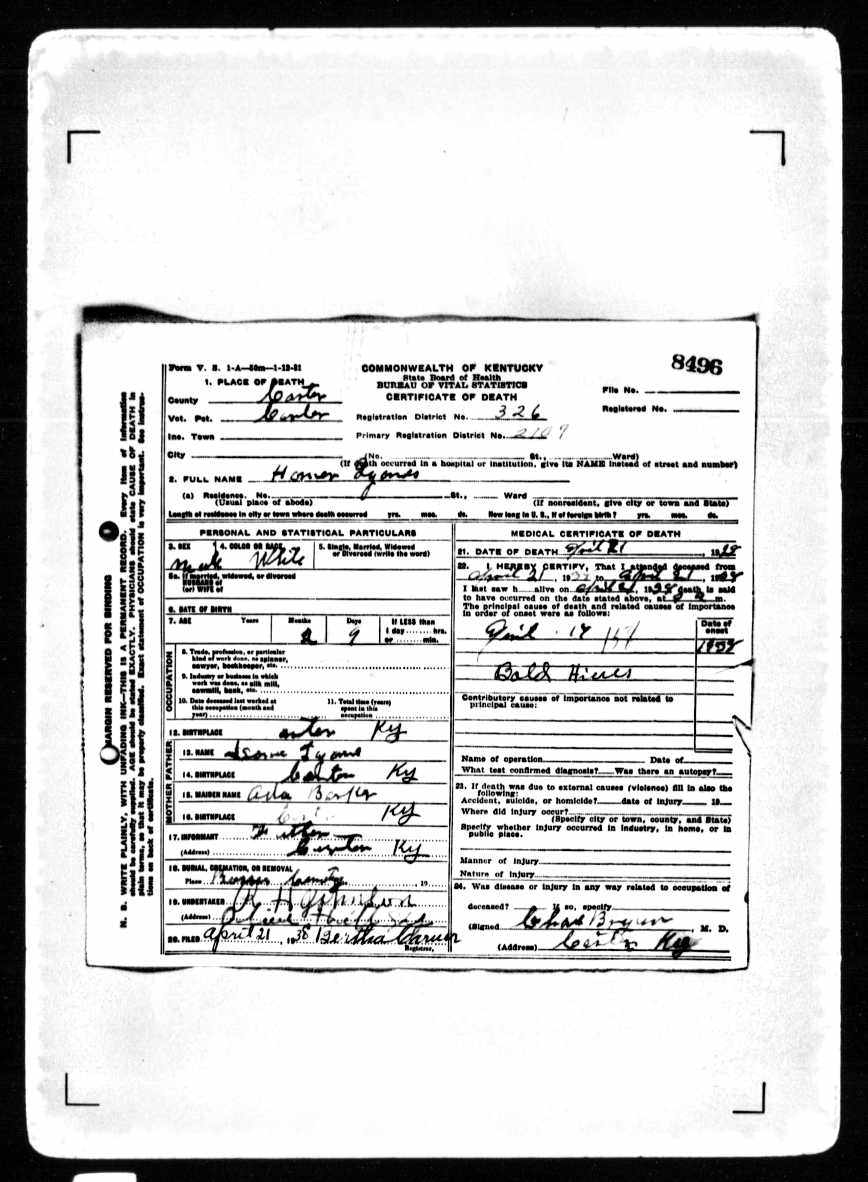 8496
Form V. S. 1-A—50m—1-12-31
COMMONWEALTH OF KENTUCKY
State Board of Health
BUREAU OF VITAL STATISTICS
CERTIFICATE OF DEATH
File No.
Registered No.
1. PLACE OF DEATH
County Carter
Vot. Pct. Carter
Registration District No. 326
Inc. Town
Primary Registration District No. 2107
City (No. St., Ward)
(If death occurred in a hospital or institution, give its NAME instead of street and number)
2. FULL NAME Homer Lyons
(a) Residence. No. St., Ward
(Usual place of abode) (If nonresident, give city or town and State)
Length of residence in city or town where death occurred yrs. mos. ds. How long in U. S., if of foreign birth? yrs. mos. ds.
PERSONAL AND STATISTICAL PARTICULARS
3. SEX Male
4. COLOR OR RACE White
5. Single, Married, Widowed or Divorced (write the word)
5a. If married, widowed, or divorced
HUSBAND of
(or) WIFE of
6. DATE OF BIRTH
7. AGE Years Months Days If LESS than
2 9 1 day hrs.
or min.
OCCUPATION
8. Trade, profession, or particular
kind of work done, as spinner,
sawyer, bookkeeper, etc.
9. Industry or business in which
work was done, as silk mill,
sawmill, bank, etc.
10. Date deceased last worked at
this occupation (month and
year)
11. Total time (years)
spent in this
occupation
12. BIRTHPLACE Ky
FATHER
13. NAME Lyons
14. BIRTHPLACE Carter Ky
MOTHER
15. MAIDEN NAME Barker
16. BIRTHPLACE Ky
17. INFORMANT
(Address) Carter Ky
18. BURIAL, CREMATION, OR REMOVAL
Place , 19
19. UNDERTAKER
(Address)
20. FILED April 21, 1938 Bertha
Registrar.
MEDICAL CERTIFICATE OF DEATH
21. DATE OF DEATH April 21, 1938
22. I HEREBY CERTIFY, That I attended deceased from
April 21, 19 to April 21, 1938
I last saw h alive on April 21, 1938 death is said
to have occurred on the date stated above, at m.
The principal cause of death and related causes of importance
in order of onset were as follows:
Date of
onset
April 19
Bold Hives
Contributory causes of importance not related to
principal cause:
Name of operation Date of
What test confirmed diagnosis? Was there an autopsy?
23. If death was due to external causes (violence) fill in also the
following:
Accident, suicide, or homicide? date of injury 19
Where did injury occur?
(Specify city or town, county, and State)
Specify whether injury occurred in industry, in home, or in
public place.
Manner of injury
Nature of injury
24. Was disease or injury in any way related to occupation of
deceased? If so, specify
(Signed Chas , M. D.
(Address) Ky
MARGIN RESERVED FOR BINDING
N. B. WRITE PLAINLY, WITH UNFADING INK—THIS IS A PERMANENT RECORD. Every item of information
should be carefully supplied. AGE should be stated EXACTLY. PHYSICIANS should state CAUSE OF DEATH in
plain terms, so that it may be properly classified. Exact statement of OCCUPATION is very important. See instruc-
tions on back of certificate.